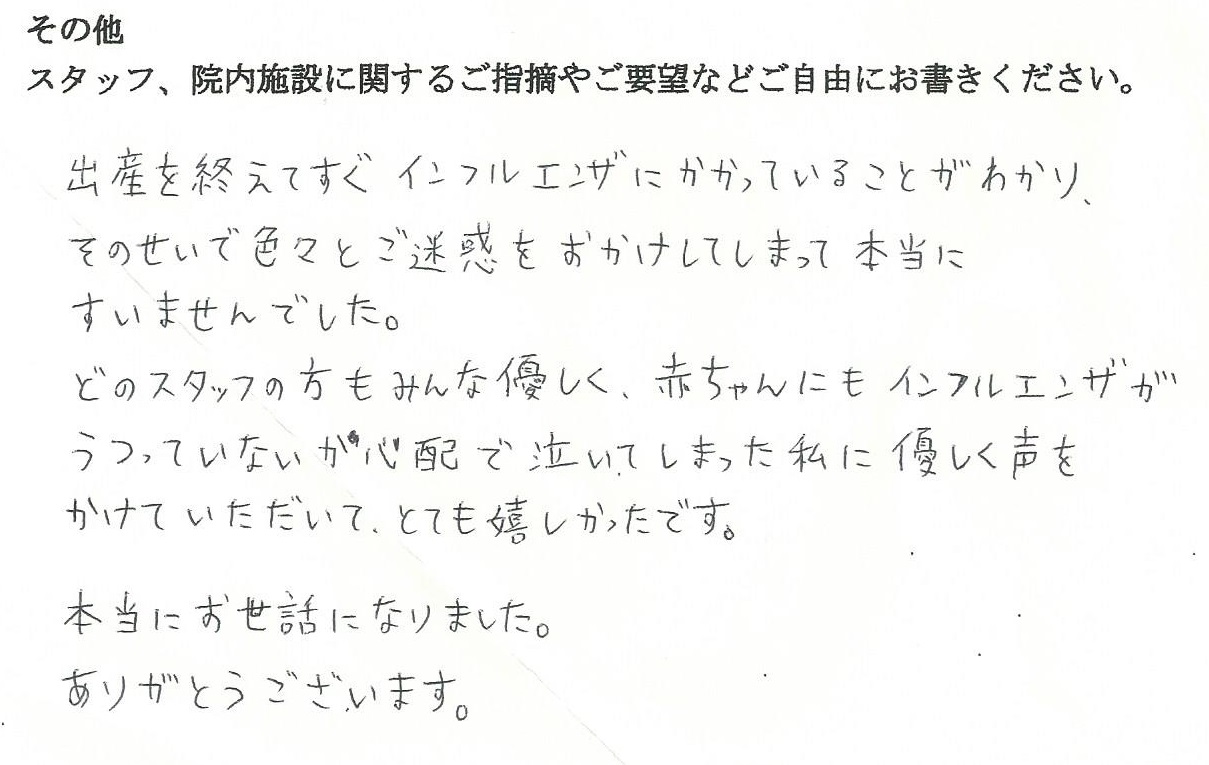 その他
スタッフ、院内施設に関するご指摘やご要望などご自由にお書きください。
出産を終えてすぐインフルエンザにかかっていることがわかり、
そのせいで色々とご迷惑をおかけしてしまって本当に
すいませんでした。
どのスタッフの方もみんな優しく、赤ちゃんにもインフルエンザが
うつっていないが心配で泣いてしまった私に優しく声を
かけていただいて、とても嬉しかったです。
本当にお世話になりました。
ありがとうございます。